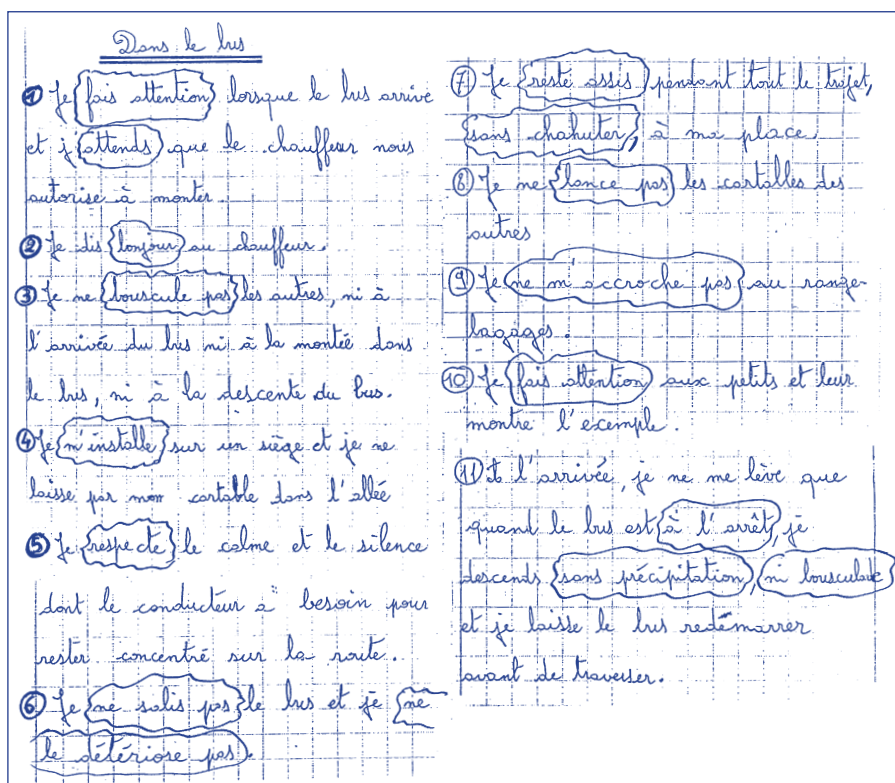 Dans le bus
① Je fais attention lorsque le bus arrive
et j'attends que le chauffeur nous
autorise à monter.
② Je dis bonjour au chauffeur.
③ Je ne bouscule pas les autres, ni à
l'arrivée du bus ni à la montée dans
le bus, ni à la descente du bus.
④ Je m'installe sur un siège et je ne
laisse pas mon cartable dans l'allée
⑤ Je respecte le calme et le silence
dont le conducteur a besoin pour
rester concentré sur la route.
⑥ Je ne salis pas le bus et je ne
le détériore pas.
⑦ Je reste assis pendant tout le trajet,
sans chahuter, à ma place.
⑧ Je ne lance pas les cartables des
autres
⑨ Je ne m'accroche pas au range-
bagages.
⑩ Je fais attention aux petits et leur
montre l'exemple.
⑪ A l'arrivée, je ne me lève que
quand le bus est à l'arrêt, je
descends sans précipitation, ni bousculade
et je laisse le bus redémarrer
avant de traverser.